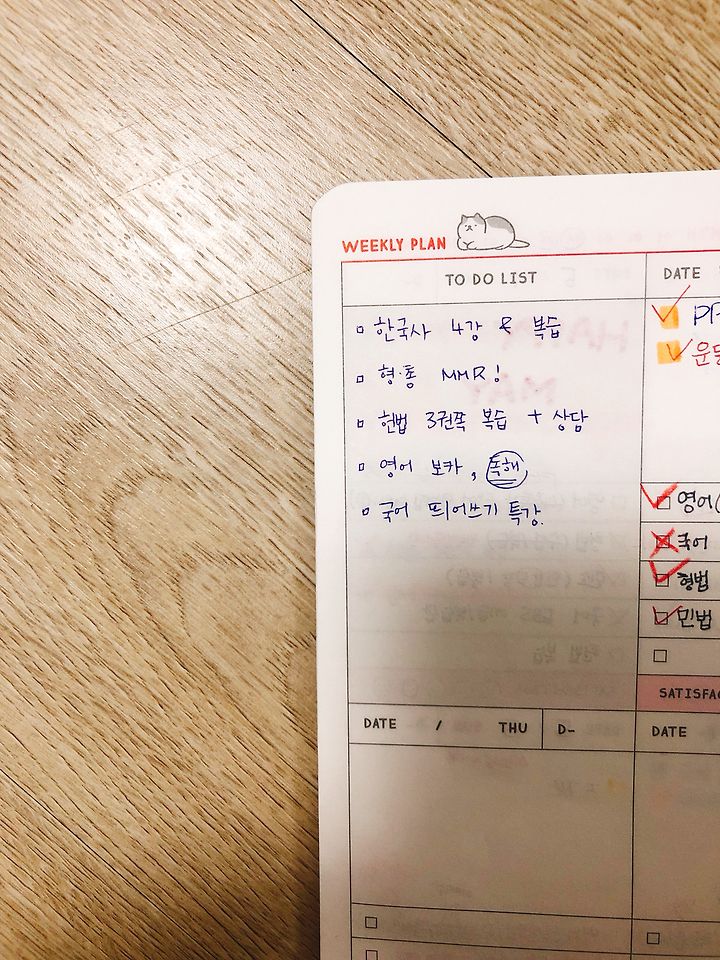 WEEKLY PLAN
TO DO LIST
한국사 4강 & 복습
형·총 MMR!
헌법 3권쪽 복습 + 상담
영어 보카, 독해
국어 띄어쓰기 특강.
DATE
영어(
국어
형법
민법
SATISFAC
DATE / THU D-
DATE